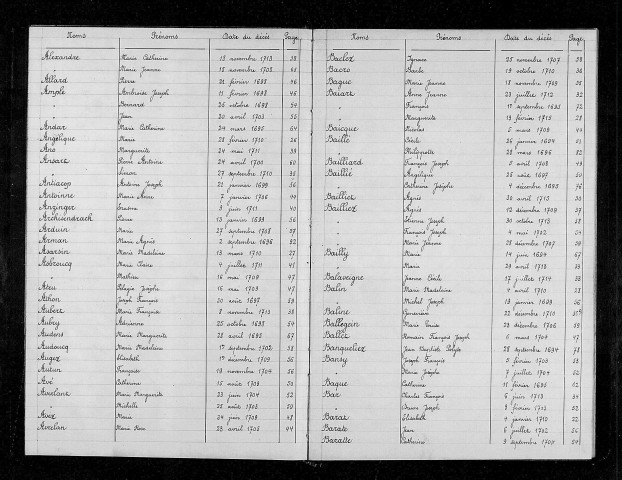 Noms Prénoms Date du décès Page
Alexandre Marie Catherine 13 novembre 1713 38
" Marie Jeanne 18 novembre 1708 41
Allard Pierre 21 février 1698 46
Ample Ambroise Joseph 11 février 1698 46
" Bernard 26 octobre 1698 54
" Jean 20 avril 1703 50
Andar Marie Catherine 24 mars 1695 64
Angélique Marie 28 février 1710 36
Ano Marguerite 24 mai 1711 39
Ansart Pierre Antoine 24 avril 1700 60
" Simon 27 septembre 1710 35
Antiacop Antoine Joseph 21 janvier 1699 56
Antoinne Marie Anne 7 janvier 1706 49
Anzinger Erasme 3 juin 1711 40
Archiendrach Pierre 13 janvier 1699 56
Arduin Marie 27 septembre 1708 37
Arman Marie Agnès 2 septembre 1696 32
Assarbin Marie Madeleine 13 mars 1710 27
Aubroucq Marie Claire 4 juillet 1711 41
" Mathieu 16 mai 1709 47
Ateu Pélagie Josèphe 16 mai 1709 47
Athon Joseph François 20 août 1697 53
Aubert Marie Françoise 8 novembre 1713 38
Aubry Adrienne 25 octobre 1698 54
Audens Marie Marguerite 28 avril 1695 67
Audoucq Marie Madeleine 1er septembre 1702 38
Augez Elisabeth 1er décembre 1709 36
Autun Françoise 19 novembre 1704 56
Avé Catherine 16 août 1708 50
Avelane Marie Marguerite 23 juin 1704 52
" Michelle 28 août 1703 50
Avez Marie 24 juin 1709 48
Avrelan Marie Rose 23 avril 1705 44
Noms Prénoms Date du décès Page
Baclez Ignace 25 novembre 1707 58
Bacro Barbe 19 octobre 1710 36
Bague Marie Jeanne 18 novembre 1709 35
Baiart Anne Jeanne 23 juillet 1712 32
" François 1er septembre 1695 72
" Marguerite 13 février 1713 28
Baicque Nicolas 5 mars 1709 44
Baille Cécile 26 janvier 1694 51
" Philippotte 28 mars 1696 82
Bailliard François Joseph 5 avril 1708 49
Baillié Angélique 26 août 1697 50
" Catherine Josèphe 4 décembre 1695 76
Bailliet Agnès 30 avril 1713 30
Bailliez Agnès 12 décembre 1709 57
" Etienne Joseph 30 octobre 1713 38
" François Joseph 4 mai 1702 54
" Marie Jeanne 28 décembre 1707 59
Bailly Marie 14 juin 1694 67
" Marie 29 avril 1718 33
Balavoigne Jeanne Cécile 17 juillet 1714 33
Balin Marie Madeleine 4 avril 1710 28
" Michel Joseph 13 janvier 1699 56
Baline Geneviève 22 décembre 1710
Ballegoin Marie Louise 28 décembre 1706 59
Ballet Romain François Joseph 6 mars 1709 47
Banqueliez Jean Baptiste Philippe 28 septembre 1694 78
Bansy Joseph François 5 février 1703 39
" Marie Josèphe 7 juillet 1704 52
Baque Catherine 11 février 1695 62
Bar Charles François 6 juin 1713 34
" Oreure Joseph 8 février 1703 52
Barat Elisabeth 4 janvier 1710 22
Barate Jean 6 juillet 1702 36
Baratte Catherine 3 septembre 1700 54